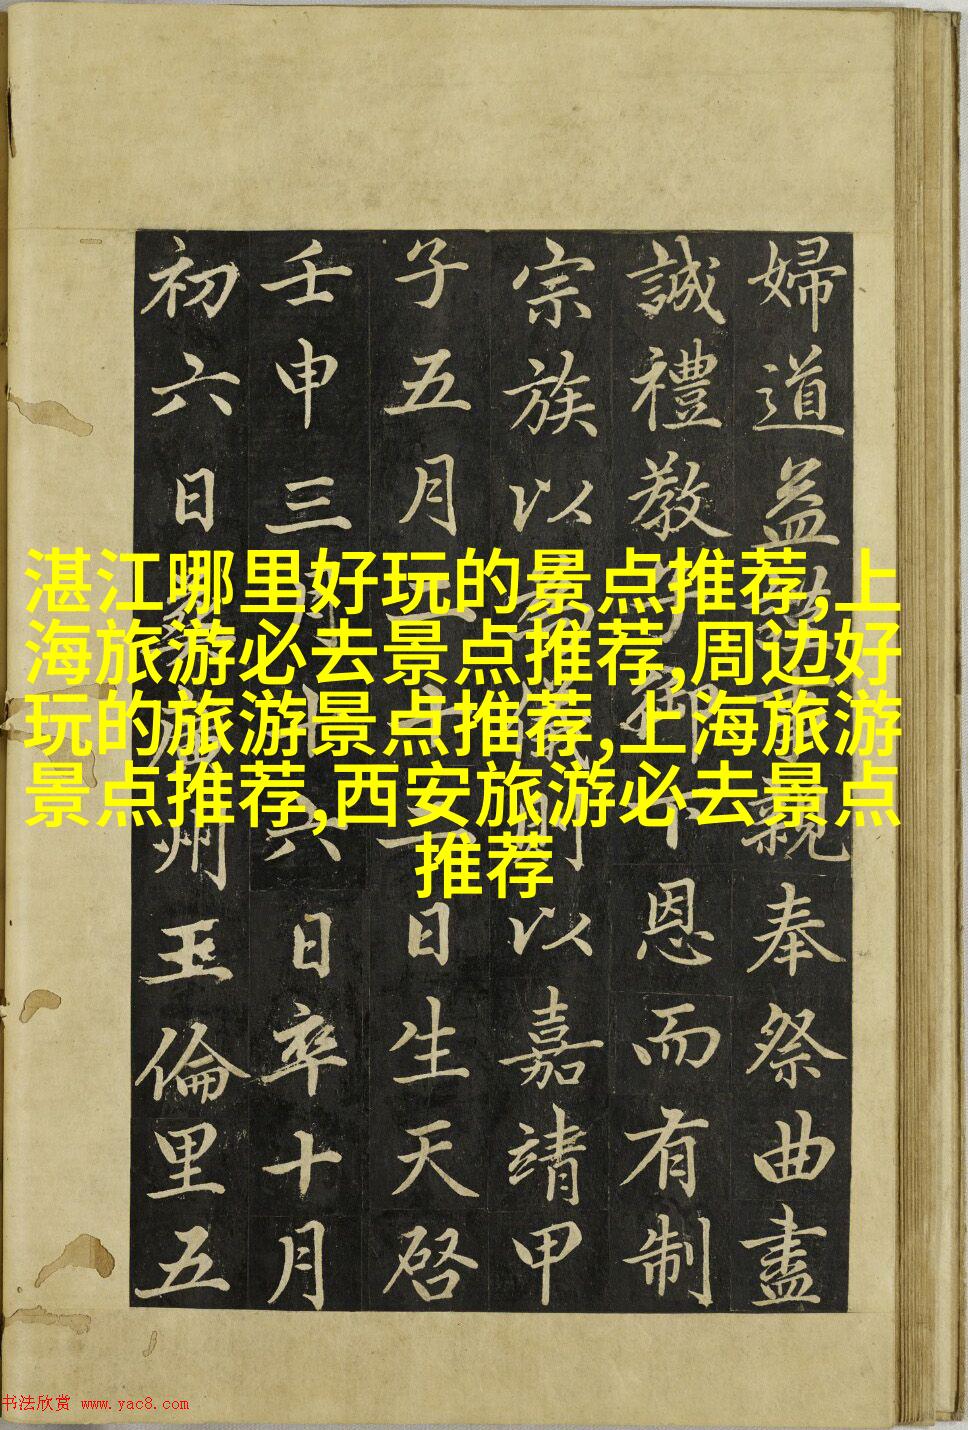 婦道益事親奉祭曲盡
誠禮教子御下恩而有制
宗族以為儀則以嘉靖甲
子五月十日生天啓
壬申三月六日卒十月
初六日葬州王倫里五
湛江哪里好玩的景点推荐,上
海旅游必去景点推荐,周边好
玩的旅游景点推荐,上海旅游
景点推荐,西安旅游必去景点
推荐
书法欣赏 www.yac8.com